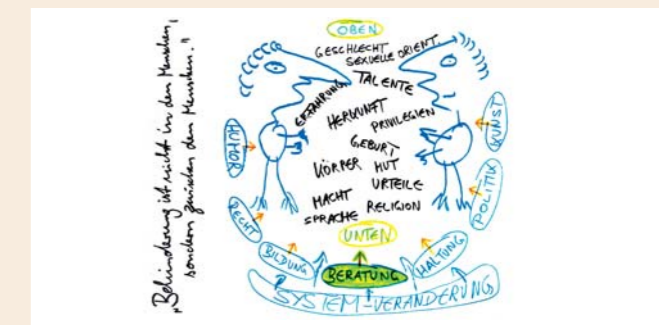 „Behinderung ist nicht in den Menschen,
sondern zwischen den Menschen."
OBEN
GESCHLECHT
SEXUELLE ORIENT
TALENTE
ERFAHRUNG
HERKUNFT
PRIVILEGIEN
GEBURT
KÖRPER
MUT
URTEILE
MACHT
SPRACHE
RELIGION
UNTEN
HUMOR
KUNST
RECHT
POLITIK
BILDUNG
BERATUNG
HALTUNG
SYSTEM-VERÄNDERUNG